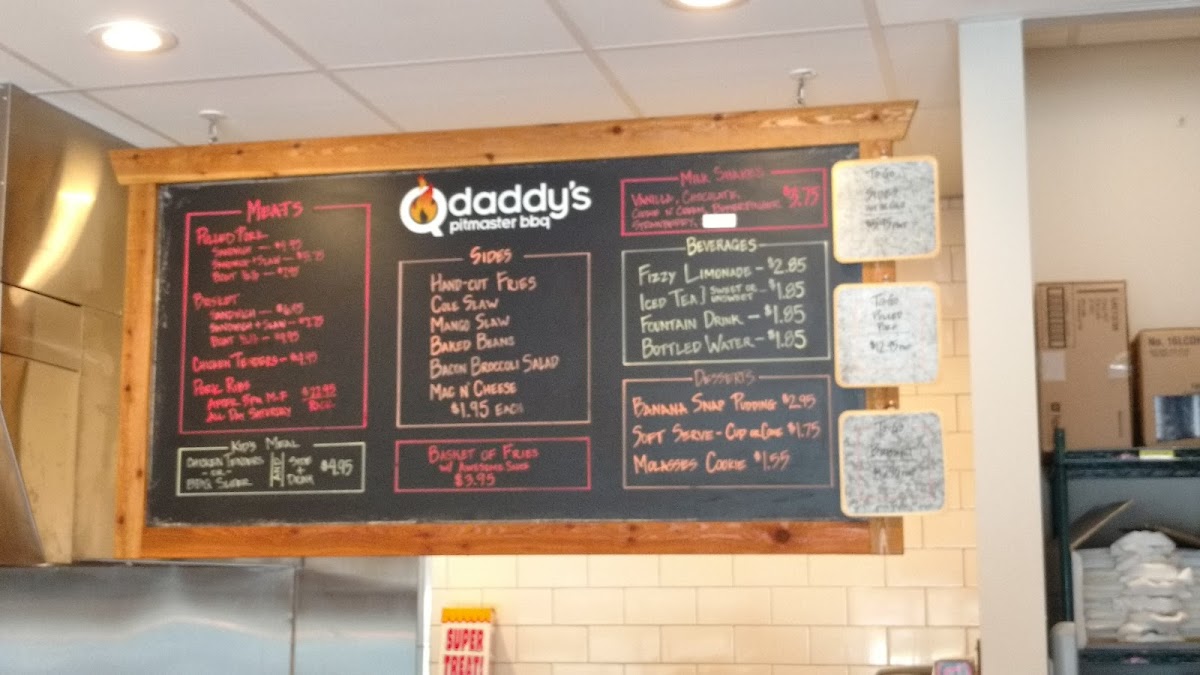 Qdaddy's
pitmaster bbq
MEATS
PULLED PORK
SANDWICH — $4.95
SANDWICH + SLAW — $5.75
BRISKET
SANDWICH —
SANDWICH + SLAW —
CHICKEN TENDERS — $4.95
PORK RIBS
AFTER 5PM M-F $22.95
ALL DAY SATURDAY RACK
KID'S MEAL
CHICKEN TENDERS
- OR -
BBQ SLIDER
AND
SIDE
+
DRINK
$4.95
SIDES
HAND-CUT FRIES
COLE SLAW
MANGO SLAW
BAKED BEANS
BACON BROCCOLI SALAD
MAC N' CHEESE
$1.95 EACH
BASKET OF FRIES
W/ AWESOME SAUCE
$3.95
MILK SHAKES
VANILLA, CHOCOLATE,
COOKIE N' CREAM,
STRAWBERRY,
$3.75
BEVERAGES
FIZZY LIMONADE - $2.85
ICED TEA } SWEET OR UNSWEET - $1.85
FOUNTAIN DRINK - $1.85
BOTTLED WATER - $1.85
DESSERTS
BANANA SNAP PUDDING $2.95
SOFT SERVE - CUP OR CONE $1.75
MOLASSES COOKIE $1.55
TO-GO
TO-GO
PULLED
PORK
TO-GO
SUPER
TREAT!